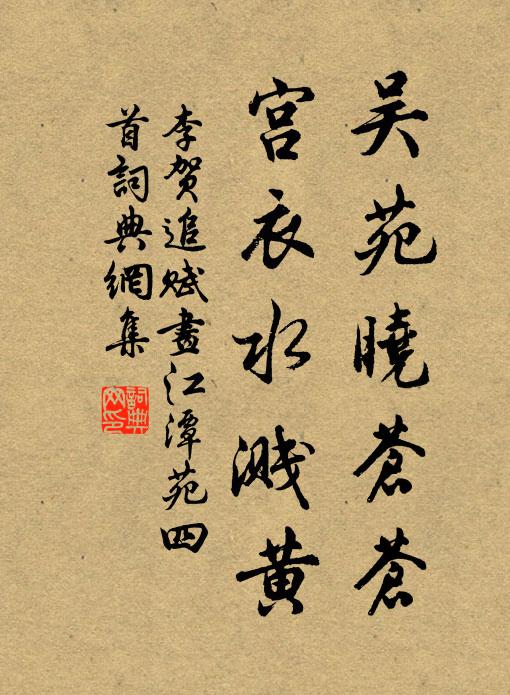 吴苑曉蒼蒼
宫衣水濺黄
李贺追赋畫江潭苑四
首詞典網集
詞典
网印